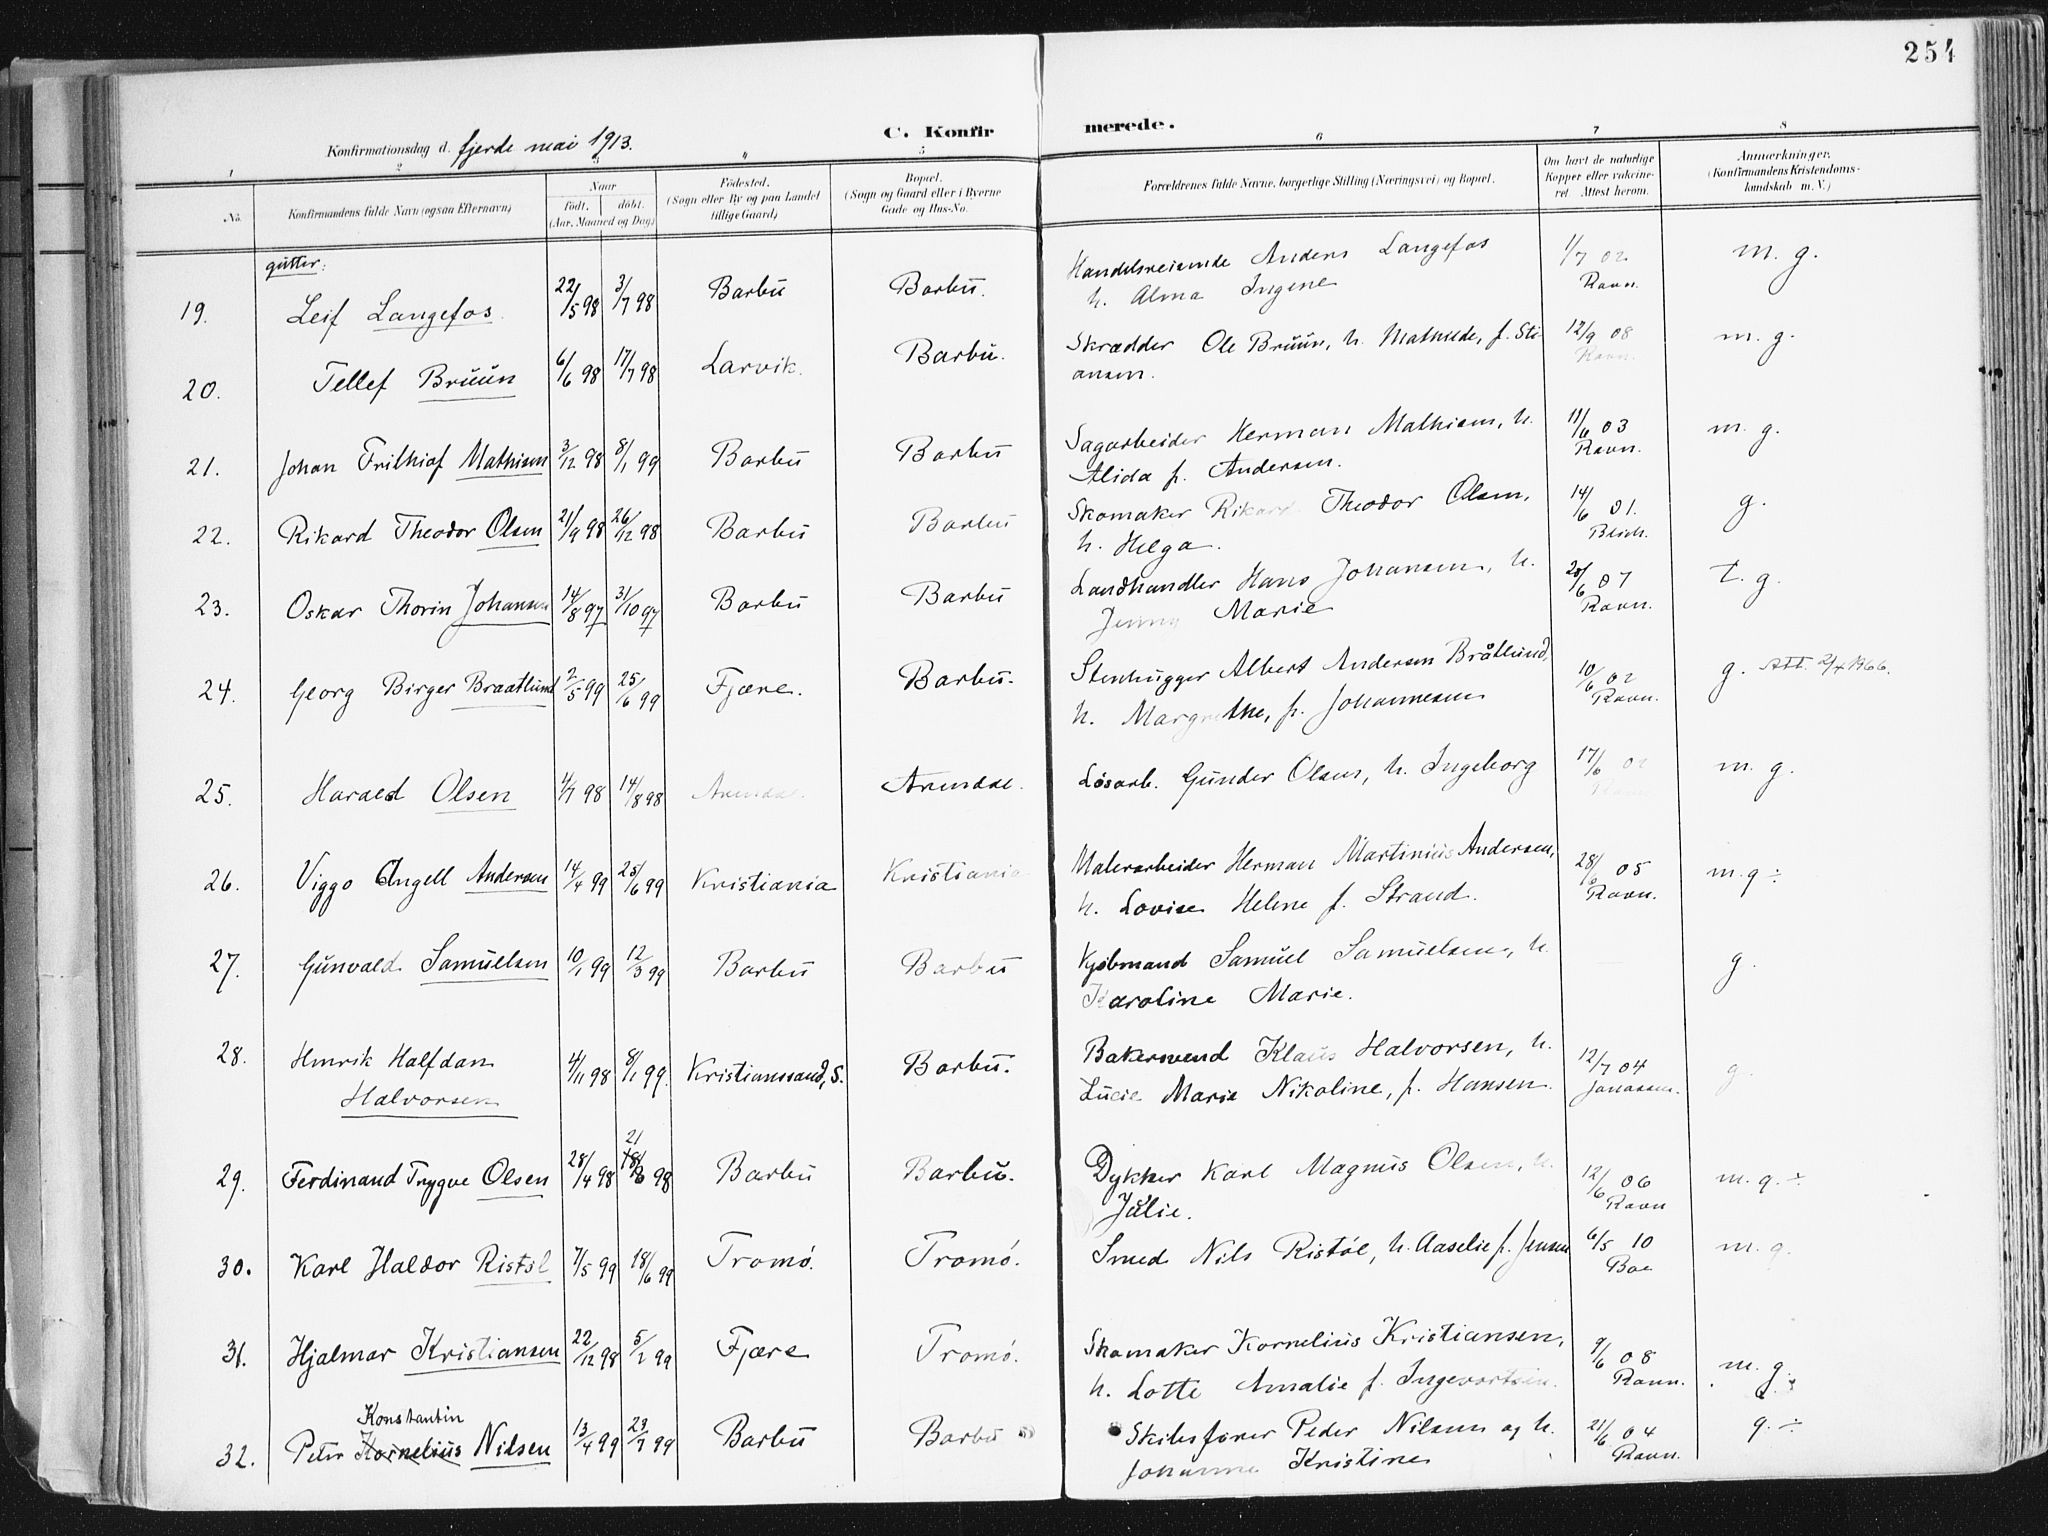 254
C. Konfirmerede.
Konfirmationsdag d. fjerde mai 1913.
1 2 3 4 5 6 7 8
No.
Konfirmandens fulde Navn (ogsaa Efternavn)
Naar født. døbt. (Aar, Maaned og Dag)
Fødested. (Sogn eller By og paa Landet tillige Gaard)
Bopæl. (Sogn og Gaard eller i Byerne Gade og Hus-No.
Forældrenes fulde Navne, borgerlige Stilling (Næringsvei) og Bopæl.
Om havt de naturlige Kopper eller vakcineret Attest herom.
Anmærkninger. (Konfirmandens Kristendomskundskab m. V.)
gutter:
19. Leif Langefos 22/5 98 3/7 98 Barbu Barbu. Handelsreisende Anders Langefos 1/7 02 m. g.
h. Alma Ingene Ravn.
20. Tellef Bruun 6/6 98 17/7 98 Larvik. Barbu. Skrædder Ole Bruun, h. Mathilde, f. Sti- 12/9 08 m. g.
ansen. Ravn.
21. Johan Frithiof Mathisen 3/12 98 8/1 99 Barbu Barbu Sagarbeider Herman Mathisen, h. 11/6 03 m. g.
Alida f. Andersen. Ravn.
22. Rikard Theodor Olsen 21/9 98 26/12 98 Barbu Barbu Skomaker Rikard Theodor Olsen, 14/6 01. g.
h. Helga.
23. Oskar Thorin Johansen 14/8 97 31/10 97 Barbu Barbu Landhandler Hans Johansen, h. 07 T. g.
Jenny Marie Ravn.
24. Georg Birger Braatlund 2/5 99 25/6 99 Fjære. Barbu. Stenhugger Albert Andersen Bråtlund, 10/6 02 g. Att. 2/4 1966.
h. Margrethe, f. Johannesen Ravn.
25. Harald Olsen 1/7 98 14/8 98 Arendal. Arendal. Løsarb. Gunder Olsen, h. Ingeborg 17/6 02 m. g.
Ravn
26. Viggo Angell Andersen 14/4 99 25/6 99 Kristiania Kristiania Malerarbeider Herman Martinius Andersen, 28/6 05 m. g ÷
h. Lovise Helene f. Strand. Ravn.
27. Gunvald Samuelsen 10/1 99 12/3 99 Barbu Barbu Kjøbmand Samuel Samuelsen, h. — g.
Karoline Marie.
28. Henrik Halfdan 4/11 98 8/1 99. Kristianssand, S. Barbu. Bakersvend Klaus Halvorsen, h. 12/7 04 g.
Halvorsen Lucie Marie Nikoline, f. Hansen. Jonassen.
29. Ferdinand Trygve Olsen 28/4 98 21 18/6 98 Barbu Barbu. Dykker Karl Magnus Olsen, h. 12/6 06 m. g. ÷
Julie. Ravn
30. Karl Haldor Ristøl 7/5 99 18/6 99 Tromø. Tromø. Smed Nils Ristøl, h. Aaselie f. Jensen 6/5 10 m. g.
Boe
31. Hjalmar Kristiansen 22/12 98 5/2 99 Fjære Tromø. Skomaker Kornelius Kristiansen, 9/6 08 m. g.
h. Lotte Amalie f. Ingevortsen. Ravn.
Konstantin
32. Peter Kornelius Nilsen 13/4 99 23/7 99 Barbu Barbu Skibsfører Peder Nilsen og h. 21/6 04 g. ÷
Johanne Kristine Ravn.